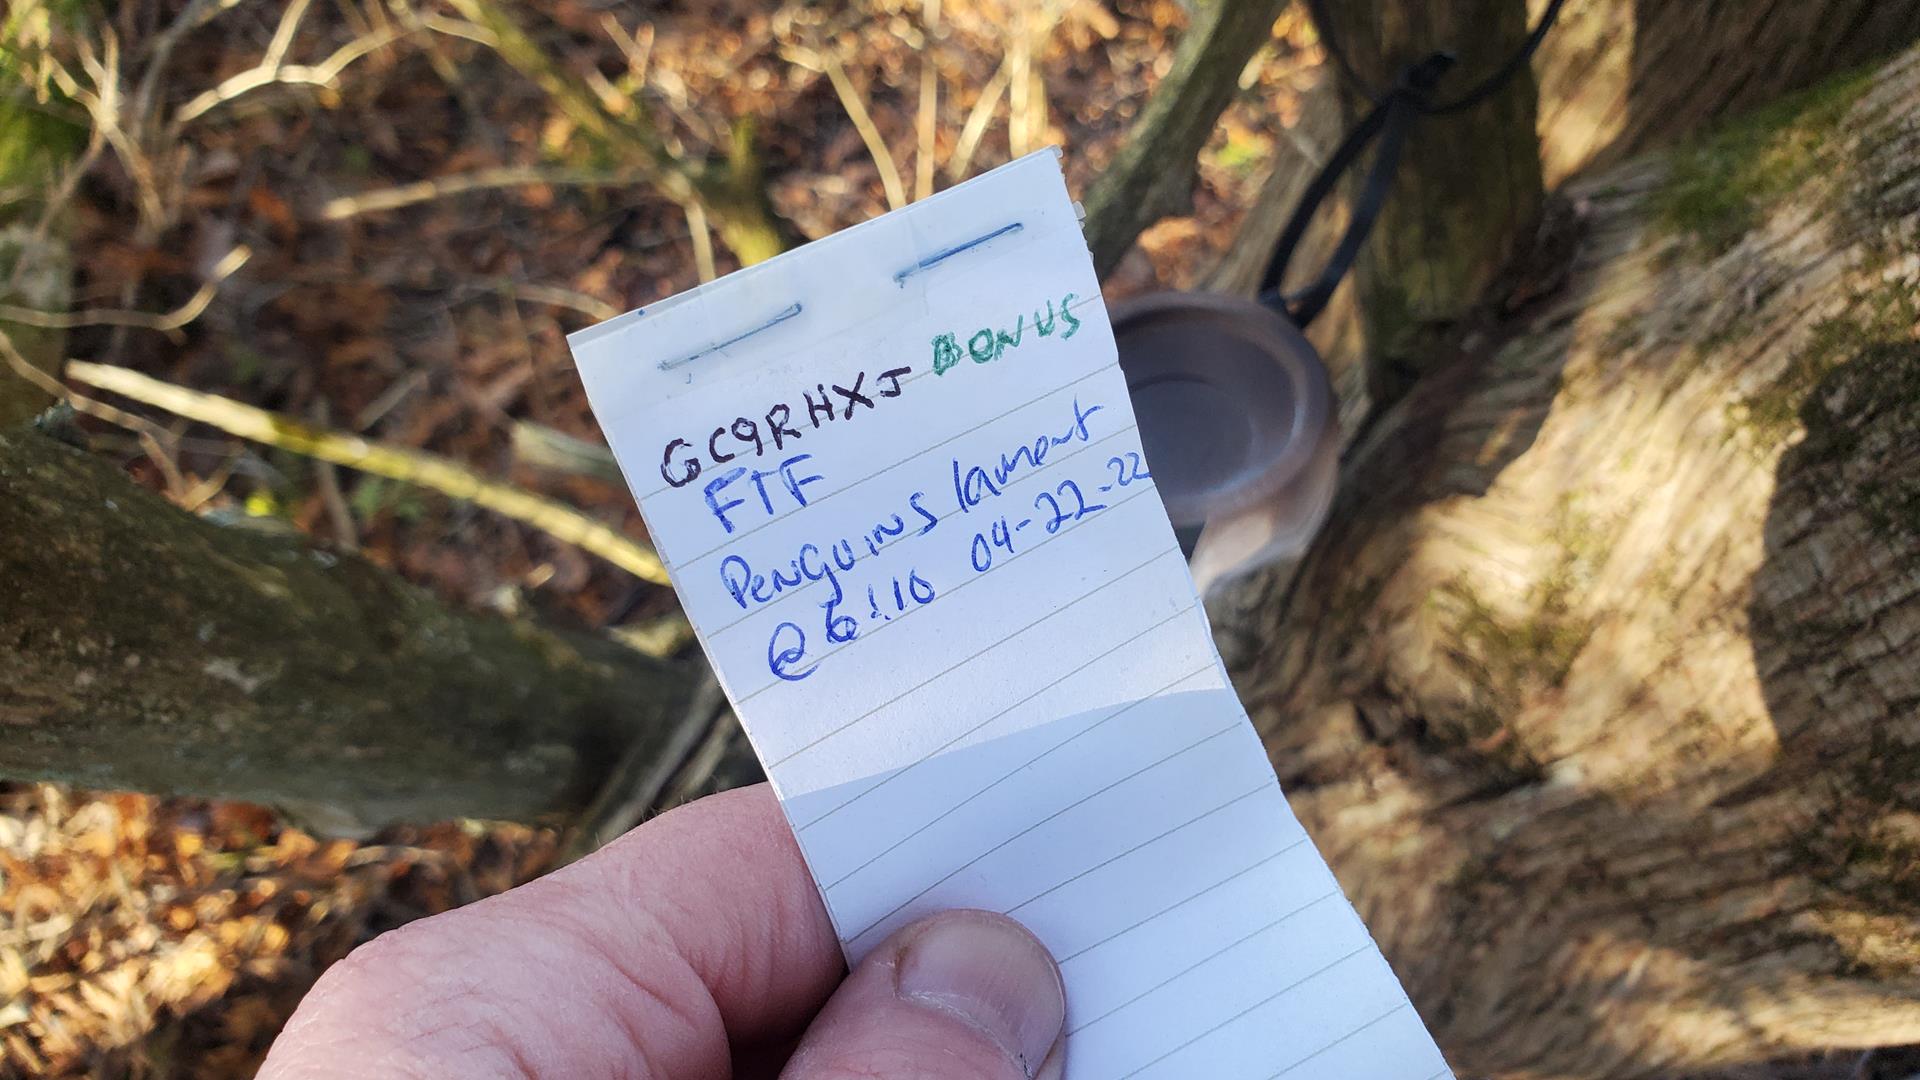 GC9RHXJ BONUS
FTF
PENGUINS lament
@ 6:10 04-22-22